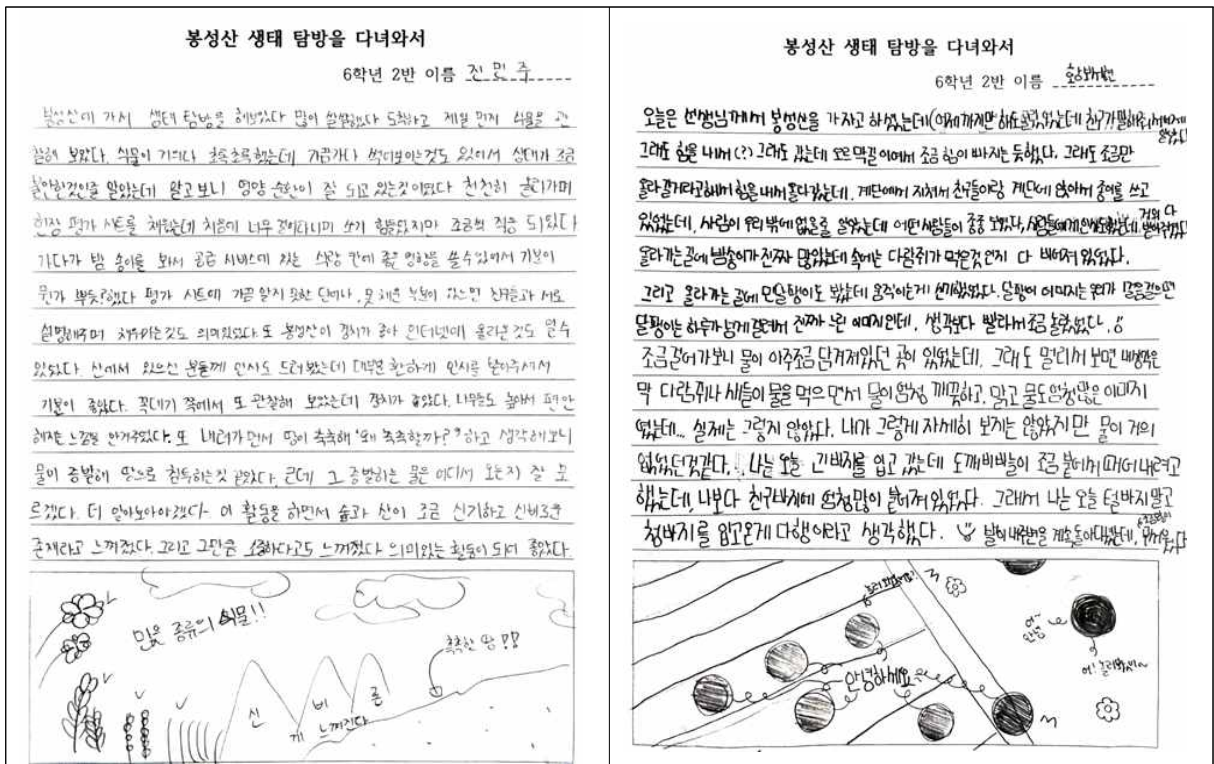 봉성산 생태 탐방을 다녀와서
6학년 2반 이름 진민주
봉성산에 가서 생태 탐방을 해보았다 많이 쌀쌀했다 도착하고 제일 먼저 식물을 관
찰해 보았다. 식물이 거의다 초록초록했는데 가끔가다 썩어보이는것도 있어서 생태가 조금
안좋은것인줄 알았는데 알고보니 영양 순환이 잘 되고 있는것이였다 천천히 올라가며
현장 평가 시트를 채웠는데 처음에 너무 걸어다니며 쓰기 힘들었지만 조금씩 적응 되었다
가다가 밤 송이를 봐서 공급 서비스에 있는 식량 칸에 좋은 영향을 쓸수있어서 기분이
뭔가 뿌듯?했다 평가 시트에 가끔 알지 못한 단어나, 못 채운 부분이 있으면 친구들과 서로
설명해주며 채워가는것도 의미있었다. 또 봉성산이 경치가 좋아 인터넷에 올라온것도 알수
있었다. 산에서 있으신 분들께 인사도 드려봤는데 대부분 환하게 인사를 받아주셔서
기분이 좋았다. 꼭대기 쪽에서 또 관찰해 보았는데 경치가 좋았다. 나무들도 높아서 편안
해지는 느낌을 안겨주었다. 또 내려가면서 땅이 축축해 '왜 축축할까?' 하고 생각해보니
물이 증발해 땅으로 침투하는것 같았다. 근데 그 증발하는 물은 어디서 오는지 잘 모
르겠다. 더 알아보아야겠다. 이 활동을 하면서 숲과 산이 조금 신기하고 신비로운
존재라고 느껴졌다. 그리고 그만큼 소중하다고도 느껴졌다 의미있는 활동이 되어 좋았다.
많은 종류의 식물!!
축축한 땅!!
신 비 롭
게 느껴진다
봉성산 생태 탐방을 다녀와서
6학년 2반 이름
오늘은 선생님께서 봉성산을 가자고 하셨는데(어제까지만 해도 몰랐었는데 친구가 말해줘서
알았다
그래도 힘을 내서(?) 그래도 갔는데 오르막길에서 조금 힘이 빠지는 듯했다. 그래도 조금만
올라갈거라고해서 힘을 내서 올라갔는데. 계단에서 지쳐서 친구들이랑 계단에 앉아서 종이를 쓰고
있었는데, 사람이 우리 밖에 없을줄 알았는데 어떤 사람들이 종종 보였다, 사람들에게 인사도했는데, 거의 다
받아주셨다
올라가는길에 밤송이가 진짜 많았는데 속에는 다람쥐가 먹은것인지 다 비어져 있었다.
그리고 올라가는 길에 민달팽이도 봤는데 움직이는게 신기했었다. 달팽이 이미지는 우리가 같으면
달팽이는 하루가 넘게 걸려서 진짜 느린 이미지인데, 생각보다 빨라서 조금 놀랐었다.
조금 걸어가보니 물이 아주조금 담겨져있던 곳이 있었는데, 그래도 멀리서 보면 내생각은
막 다람쥐나 새들이 물을 먹으면서 물이 엄청 깨끗하고, 맑고 물도 엄청많은 이미지
였는데... 실제는 그렇지 않았다. 내가 그렇게 자세히 보지는 않았지만 물이 거의
없었던것같다. 나는 오늘 긴바지를 입고 갔는데 도깨비바늘이 조금 붙어서 떼어내려고
했는데, 나보다 친구바지에 엄청많이 붙어져있었다. 그래서 나는 오늘 털바지말고
청바지를 입고온게 다행이라고 생각했다. 벌이 내주변을 계속 돌아다녔는데, 무서웠다
안녕하세요
어~
안녕